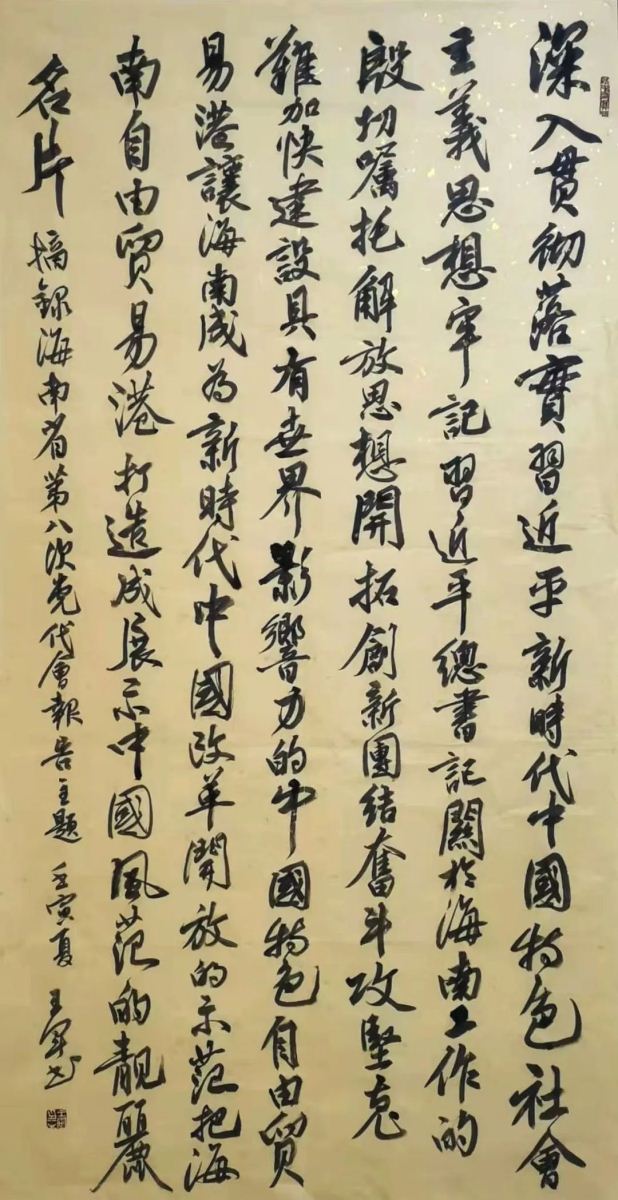 深入贯彻落實習近平新時代中國特色社會
主義思想牢記習近平總書記關於海南工作的
殷切嘱托解放思想開拓創新團结奮斗攻堅克
難加快建設具有世界影響力的中國特色自由貿
易港讓海南成为新時代中國改革開放的示范把海
南自由貿易港打造成展示中國風范的靓麗
名片
摘録海南省第八次党代會報告主題 壬寅夏 王軍书